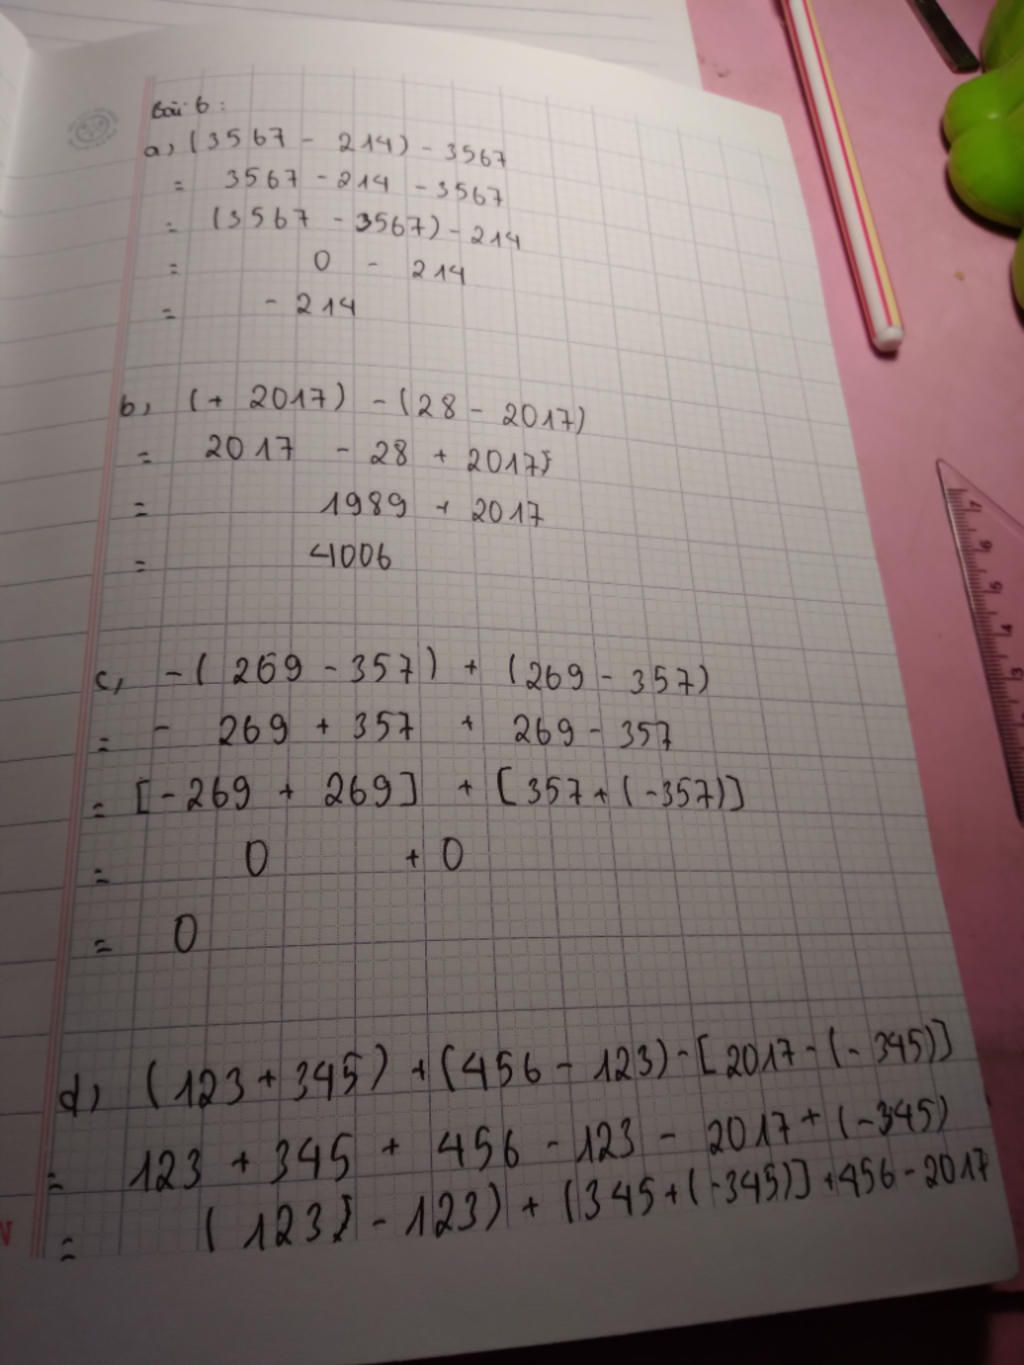 Bài 6:
a, (3567 - 214) - 3567
= 3567 - 214 - 3567
= (3567 - 3567) - 214
= 0 - 214
= - 214
b, (+ 2017) - (28 - 2017)
= 2017 - 28 + 2017
= 1989 + 2017
= 4006
c, -( 269 - 357) + (269 - 357)
= - 269 + 357 + 269 - 357
= [-269 + 269] + [357 + (-357)]
= 0 + 0
= 0
d, (123 + 345) + (456 - 123) - [2017 - (- 345)]
= 123 + 345 + 456 - 123 - 2017 + (-345)
= (123) - 123) + (345 + (-345)] + 456 - 2017